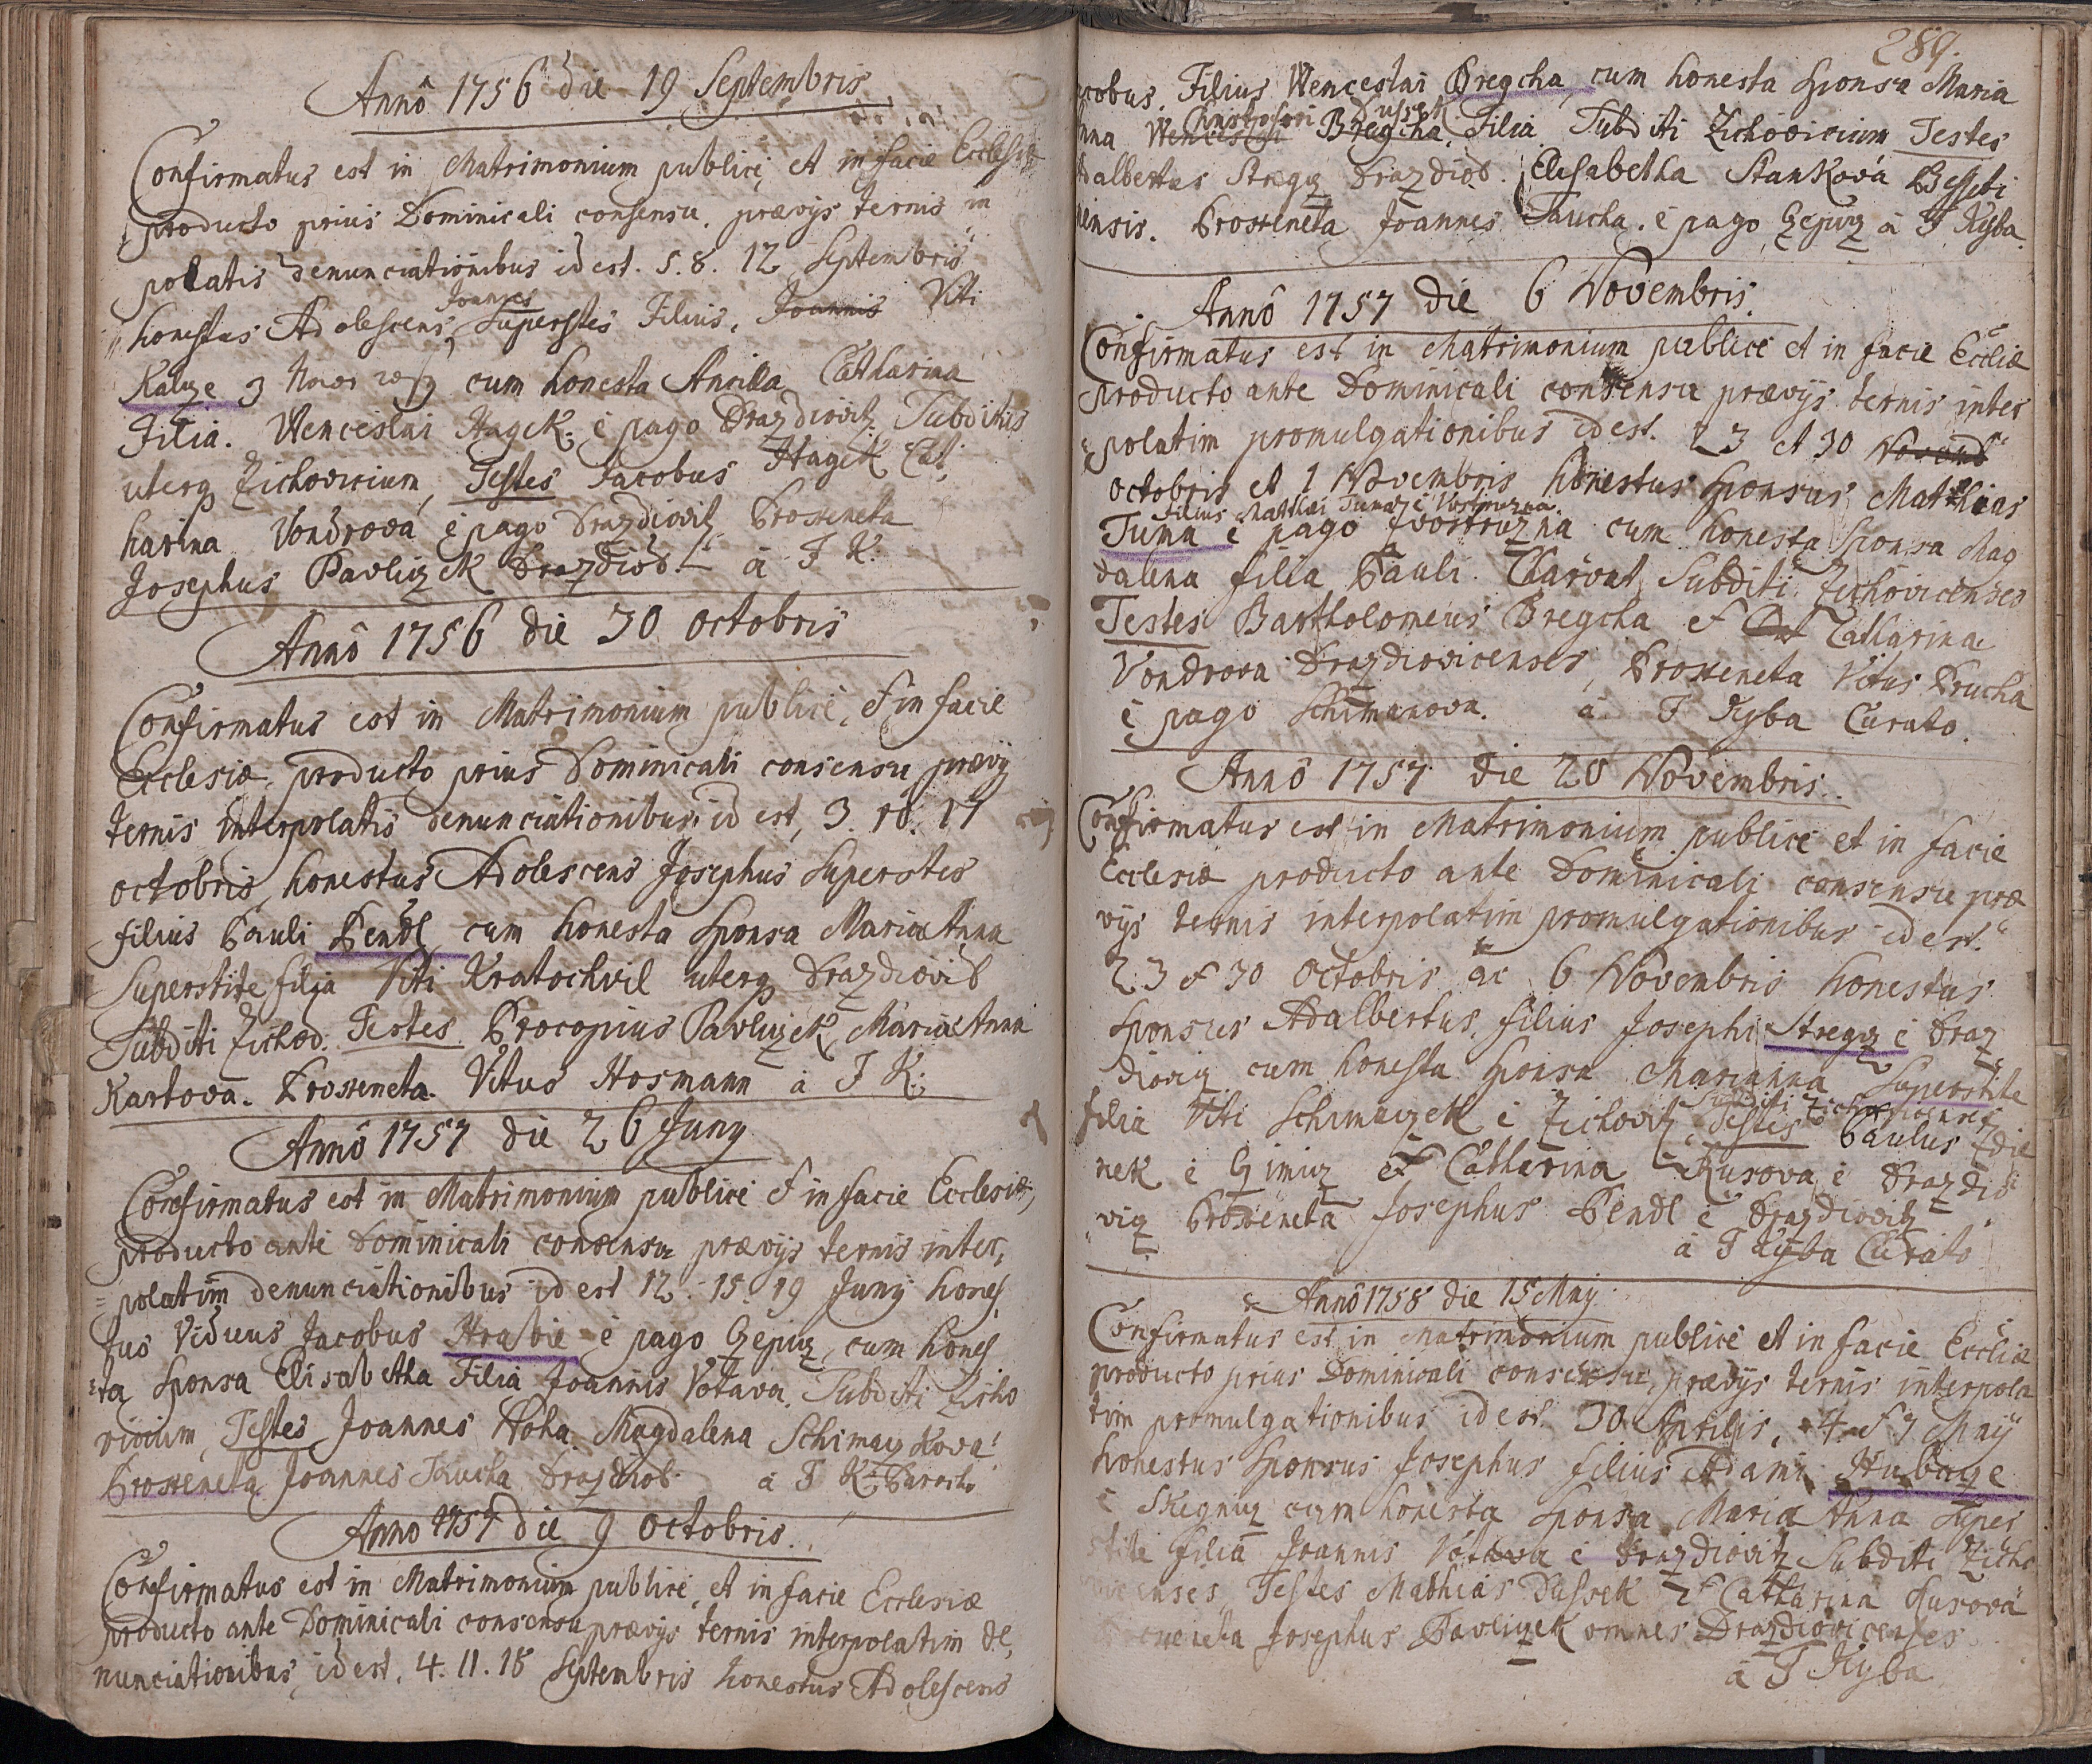 Annô 1756 die 19 Septembris
Confirmatus est in Matrimonium publicè, et in facie Ecclesiæ
producto priùs Dominicali consensu, prævijs ternis in
polatis denunciationibus id est. 5. 8. 12 Septembris
honestus Adolescens, Joannes Superstes Filius, Joannis Viti
Kaluze cum honesta Ancilla Catharina
Filia. Wenceslai Hagek: è pago Drazdiovitz. Subditus
uterq Zichovicium, Testes Jacobus Hagek Cat,
harina Vondrova è pago Drazdiovitz Proxeneta
Josephus Pavliczek Drazdiov. à J K:
Annô 1756 die 30 octobris
Confirmatus est in Matrimonium publicè, et in facie
Ecclesiæ producto priùs Dominicali consensu prævij
ternis interpolatis denunciationibus id est, 3. 10. 17
octobris, honestus Adolescens Josephus Superstes
filius Pauli Pendl cum honesta Sponsa Maria Anna
Superstite filja Viti Kratochvil uterq Drazdiovit
Subditi Zichov. Testes Procopius Pavliczek, Maria Anna
Kartova. Proxeneta. Vitus Hosmann à J K:
Annô 1757 die 26 Junÿ
Confirmatus est in Matrimonium publicè et in facie Ecclesiæ,
producto antè Dominicali consensu prævijs ternis inter,
polatim denunciationibus id est 12. 15. 19 Junij hones,
tus Viduus Jacobus Hrabie è pago Gepicz, cum hones
ta Sponsa Elisabetha Filia Joannis Votava. Subditi Zicho
vicium, Testes Joannes Hoha. Magdalena Schimaczkova
Proxeneta Joannes Taucha Drazdiov. à J K: Parocho
Anno 1757 die 9 octobris.
Confirmatus est in Matrimonium publicè, et in facie Ecclesiæ
producto antè Dominicali consensu prævijs ternis interpolatim de,
nunciationibus, id est. 4. 11. 18 Septembris honestus Adolescens
289.
acobus. Filius Wenceslai Bregcha, cum honesta Sponsa Maria
Christofori Dussek
nna Wenceslai Bregcha, Filia Subditi Zichovicium Testes
dalbertus Stregcz Drazdiov. Elisabetha Stankova
nensis. Proxeneta Joannes Taucha. è pago Gepicz à J Kyba.
Annô 1757 die 6 Novembris.
Confirmatus est in Matrimonium publicè et in facie Eccliæ
producto antè Dominicali consensu prævijs ternis inter
polatim promulgationibus id est. 23 et 30 Novemb
octobris et 1 Novembris honestus Sponsus Matthias
filius Matthæi Tuma è Vostruzna
Tuma è pago Vostruzna cum honesta Sponsa Mag
dalena filia Pauli. Charvat Subditi Zichovicenses
Testes Bartholomeus Bregcha et Catharina
Vondrova Drazdiovicenses, Proxeneta Vitus Prucha
è pago Schimanova. à J Kyba Curato.
Annô 1757 die 20 Novembris.
Confirmatus est in Matrimonium publicè et in facie
Ecclesiæ producto antè Dominicali consensu præ
vijs ternis interpolatim promulgationibus id est.
23 et 30 Octobris ac 6 Novembris honestus
Sponsus Adalbertus filius Josephi Stregcz è Draz
diovicz cum honesta Sponsa Marianna Superstite
Subditi Zichovicenses
filia Viti Schimaczek è Zichovitz, Testes Paulus Zdie
nek è Gimicz et Catharina Kusova è Drazdio
vicz Proxeneta Josephus Pendl è Drazdiovitz
à J Kyba Curato
Annô 1758 die 15 Maij
Confirmatus est in Matrimonium publicè et in facie Eccliæ
producto priùs Dominicali consensu, prævijs ternis interpola
tim promulgationibus id est. 30 Aprilis, 4. et 7 Maij
honestus Sponsus Josephus filius Adami Hubacze
è Stregnicz cum honesta Sponsa Maria Anna Super
stite filia Joannis Votava è Drazdiovitz Subditi Zicho
enses, Testes Mathias Dussek et Catharina Kusova
Josephus Pavliczek omnes Drazdiovicenses
à J Kyba